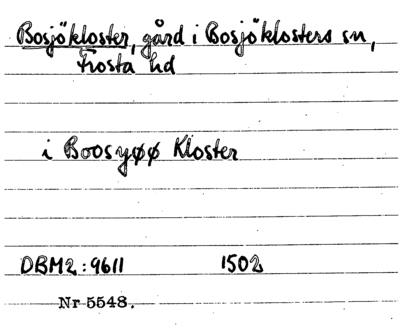 Bosjökloster, gård i Bosjöklosters sn,
Frosta hd
i Boosyøø Kloster
DBM2:9611 1502
Nr 5548.